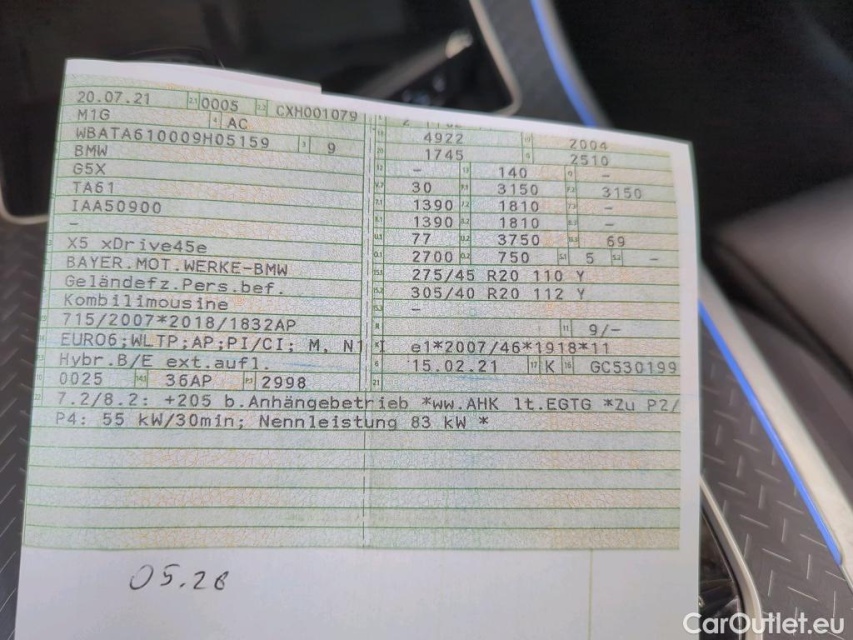 20.07.21 0005 CXH001079
M1G AC 4922 2004
WBATA610009H05159 9 1745 2510
BMW - 140 -
G5X 30 3150 3150
TA61 1390 1810 -
IAA50900 1390 1810 -
- 77 3750 69
X5 xDrive45e 2700 750 5 -
BAYER.MOT.WERKE-BMW 275/45 R20 110 Y
Geländefz.Pers.bef. 305/40 R20 112 Y
Kombilimousine -
715/2007*2018/1832AP 9/-
EURO6;WLTP;AP;PI/CI; M, N1 I e1*2007/46*1918*11
Hybr.B/E ext.aufl. 15.02.21 K GC530199
0025 36AP 2998
7.2/8.2: +205 b.Anhängebetrieb *ww.AHK lt.EGTG *Zu P2/
P4: 55 kW/30min; Nennleistung 83 kW *
05.28
CarOutlet.eu